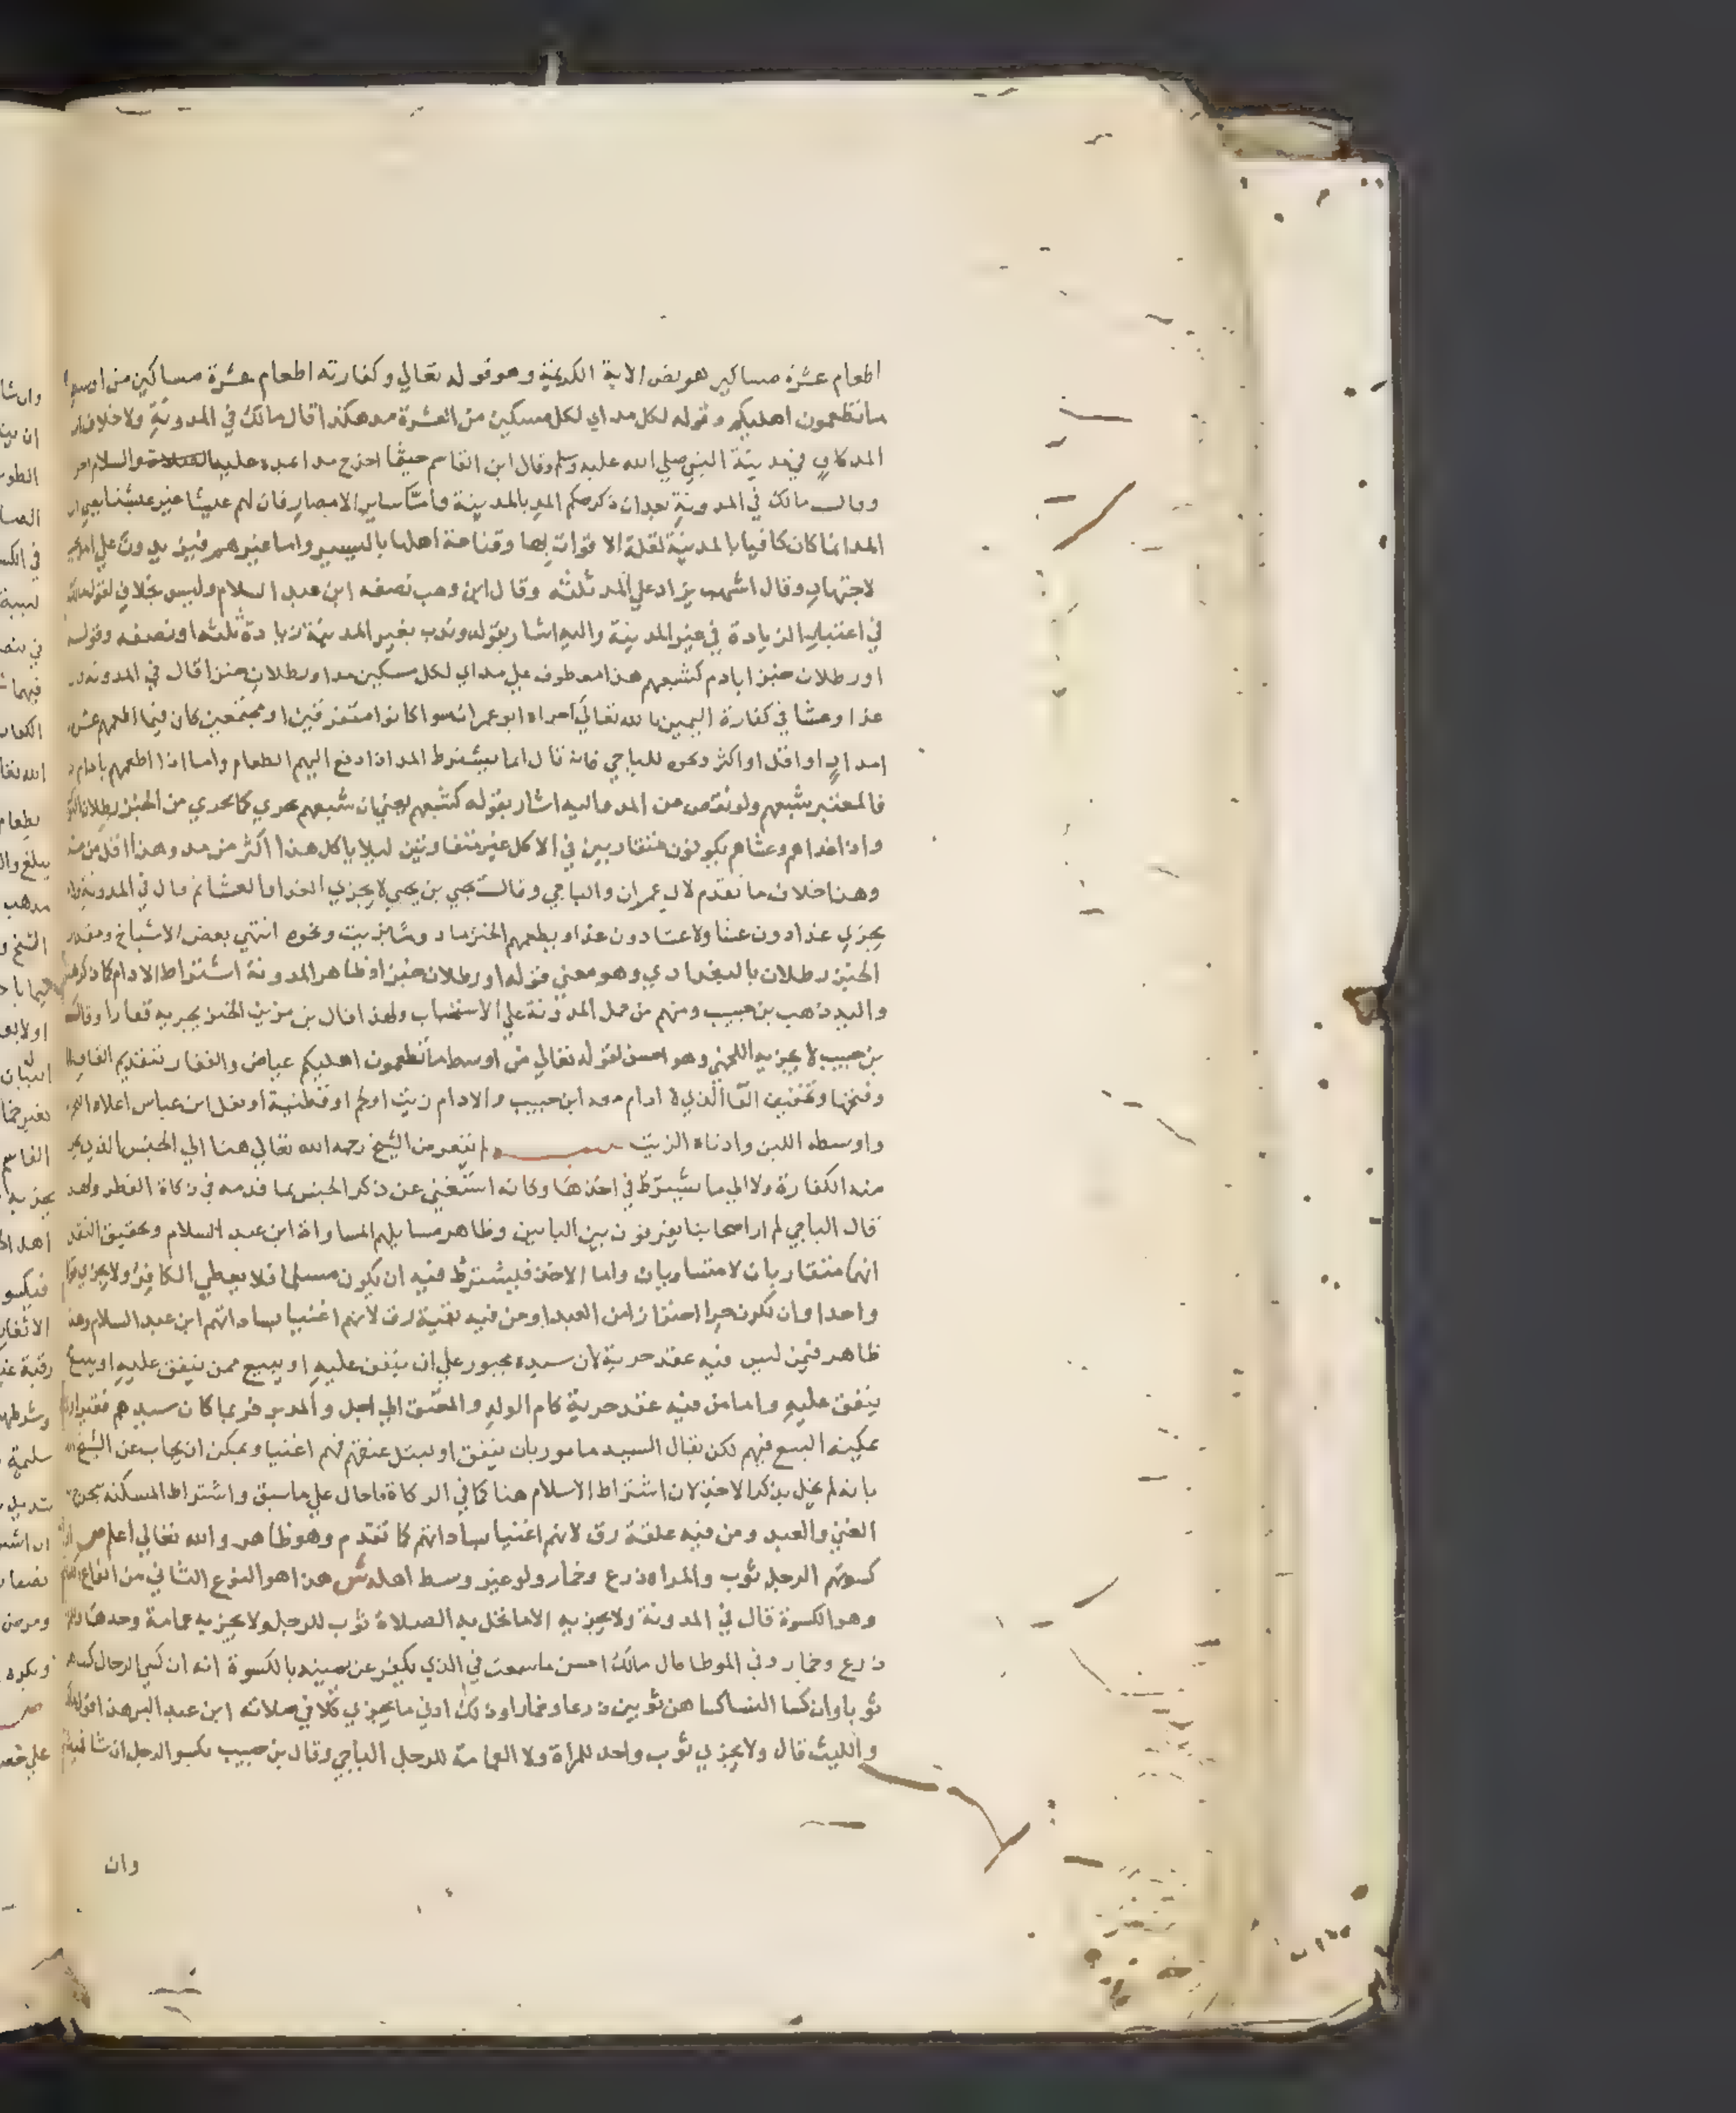 اطعام عشرة مساكين هو نص الاية الكريمة وهو قوله تعالي وكفارته اطعام عشرة مساكين من اوسط
ما تطعمون اهليكم وقوله لكل مد اي لكل مسكين من العشرة مد هكذا قال مالك في المدونة ولا خلاف ان
المد كاف في مدينة النبي صلي الله عليه وسلم وقال ابن القاسم حيثما اخرج مدا بمده عليه الصلاة والسلام
وقال مالك في المدونة بعد ان ذكر حكم المد بالمدينة واما ساير الامصار فان لهم عيشا غير عيشنا يعني ان
المد انما كان كافيا بالمدينة لقلة الاقوات بها وقناعة اهلها باليسير واما غيرهم فيزيدون علي
لاجتهاد وقال اشهب يزاد علي المد ثلثه وقال ابن وهب نصفه ابن عبد السلام وليس بخلاف لقول مالك
في اعتبار الزيادة في غير المدينة واليه اشار بقوله وندب بغير المدينة زيادة ثلثه او نصفه وقوله
او رطلان خبزا بادم كشبعهم هذا معطوف علي مد اي لكل مسكين مد او رطلان خبزا قال في المدونة
غذا وعشا في كفارة اليمين بالله تعالي اجزاه ابو عمران سوا كانوا متفرقين او مجتمعين كان فيما اطعمهم عشرة
امداد او اقل او اكثر ونحوه للباجي فانه قال انما يشترط المد اذا دفع اليهم الطعام واما اذا اطعمهم بادام
فالمعتبر شبعهم ولو نقص من المد واليه اشار بقوله كشبعهم يعني ان شبعهم يجزي كما يجزي من الخبز رطلان
واذا غداهم وعشاهم يكونون متقاربين في الاكل غير متفاوتين ليلا ياكل هذا اكثر من مد وهذا اقل من مد
وهذا خلاف ما تقدم لابي عمران والباجي وقال يحيي بن يحيي لا يجزي الغدا والعشا ثم قال في المدونة ولا
يجزي غذا دون عشا ولا عشا دون غذا ويطعمهم الخبز مادوما بزيت ونحوه انتهي بعض الاشياخ ومقدار
الخبز رطلان بالبغدادي وهو معني قوله او رطلان خبزا وظاهر المدونة اشتراط الادام كما ذكر
واليه ذهب بن حبيب ومنهم من حمل المدونة علي الاستحباب ولهذا قال بن مزين الخبز يجزيه قفارا وقال
بن حبيب لا يجزيه اللخمي وهو احسن لقوله تعالي من اوسط ما تطعمون اهليكم عياض والقفار بتقديم القاف
وفتحها وتخفيف الفا الذي لا ادام معه ابن حبيب والادام زيت او لحم او قطنية او بقل ابن عباس اعلاه اللحم
واوسطه اللبن وادناه الزيت تنبيه لم يتعرض الشيخ رحمه الله تعالي هنا الي الجنس الذي يخرج
منه الكفارة ولا الي ما يشترط في اخذها وكانه استغني عن ذكر الجنس بما قدمه في زكاة الفطر ولهذا
قال الباجي لم ار اصحابنا يفرقون بين البابين وظاهر مسايلهم المساواة ابن عبد السلام وتحقيق النقد
انهما متقاربان لا متساويان واما الاخذ فيشترط فيه ان يكون مسلما فلا يعطي الكافر ولا يجزي قولا
واحدا وان يكون حرا احترازا من العبد او من فيه بقية رق لانهم اغنيا بساداتهم ابن عبد السلام وهذا
ظاهر فيمن ليس فيه عقد حرية لان سيده مجبور علي ان ينفق عليه او يبيع ممن ينفق عليه او يبيع
ينفق عليه واما من فيه عقد حرية كام الولد والمعتق الي اجل والمدبر فربما كان سيدهم فقيرا
يمكنه البيع فيهم لكن يقال السيد مامور بان ينفق او يبتل عتقهم فهم اغنيا ويمكن ان يجاب عن الشيخ
بانه لم يخل بذكر الاخذ لان اشتراط الاسلام هنا كما في الزكاة فاحال علي ما سبق واشتراط المسكنة يخرج
الغني والعبد ومن فيه علقة رق لانهم اغنيا بساداتهم كما تقدم وهو ظاهر والله تعالي اعلم ص او
كسوتهم الرجل ثوب والمراه درع وخمار ولو غير وسط اهله ش هذا هو النوع الثاني من انواع
وهو الكسوة قال في المدونة ولا يجزيه الا ما تحل به الصلاة ثوب للرجل ولا يجزيه عمامة وحدها وللمراة
درع وخمار وفي الموطا قال مالك احسن ما سمعت في الذي يكفر عن يمينه بالكسوة انه ان كسي الرجال كساهم
ثوبا وان كسا النسا كساهن ثوبين درعا وخمارا وذلك ادني ما يجزي كلا في صلاته ابن عبد البر هذا قول مالك
والليث قال ولا يجزي ثوب واحد للمراة ولا العمامة للرجل الباجي وقال بن حبيب يكسو الرجل ان شا قميصا
وان